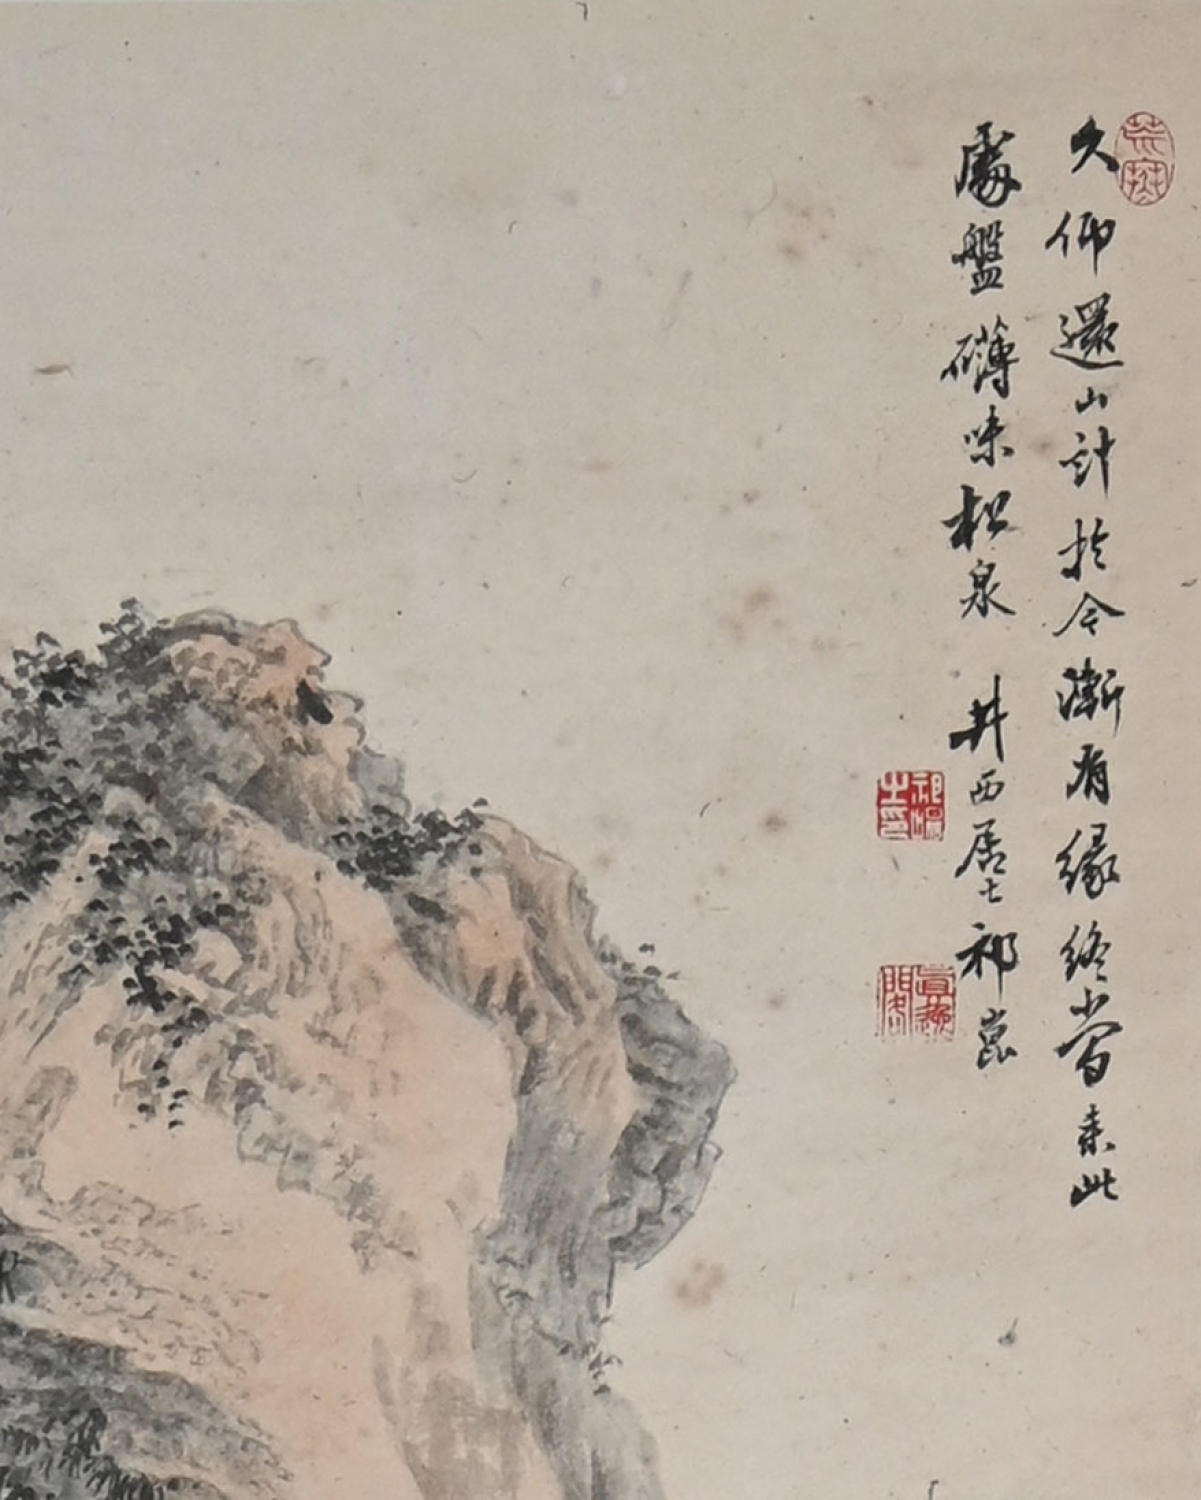 久仰還山計於今漸有緣終當來此
處盤礴味松泉 井西居士祁崑
祁崑之印